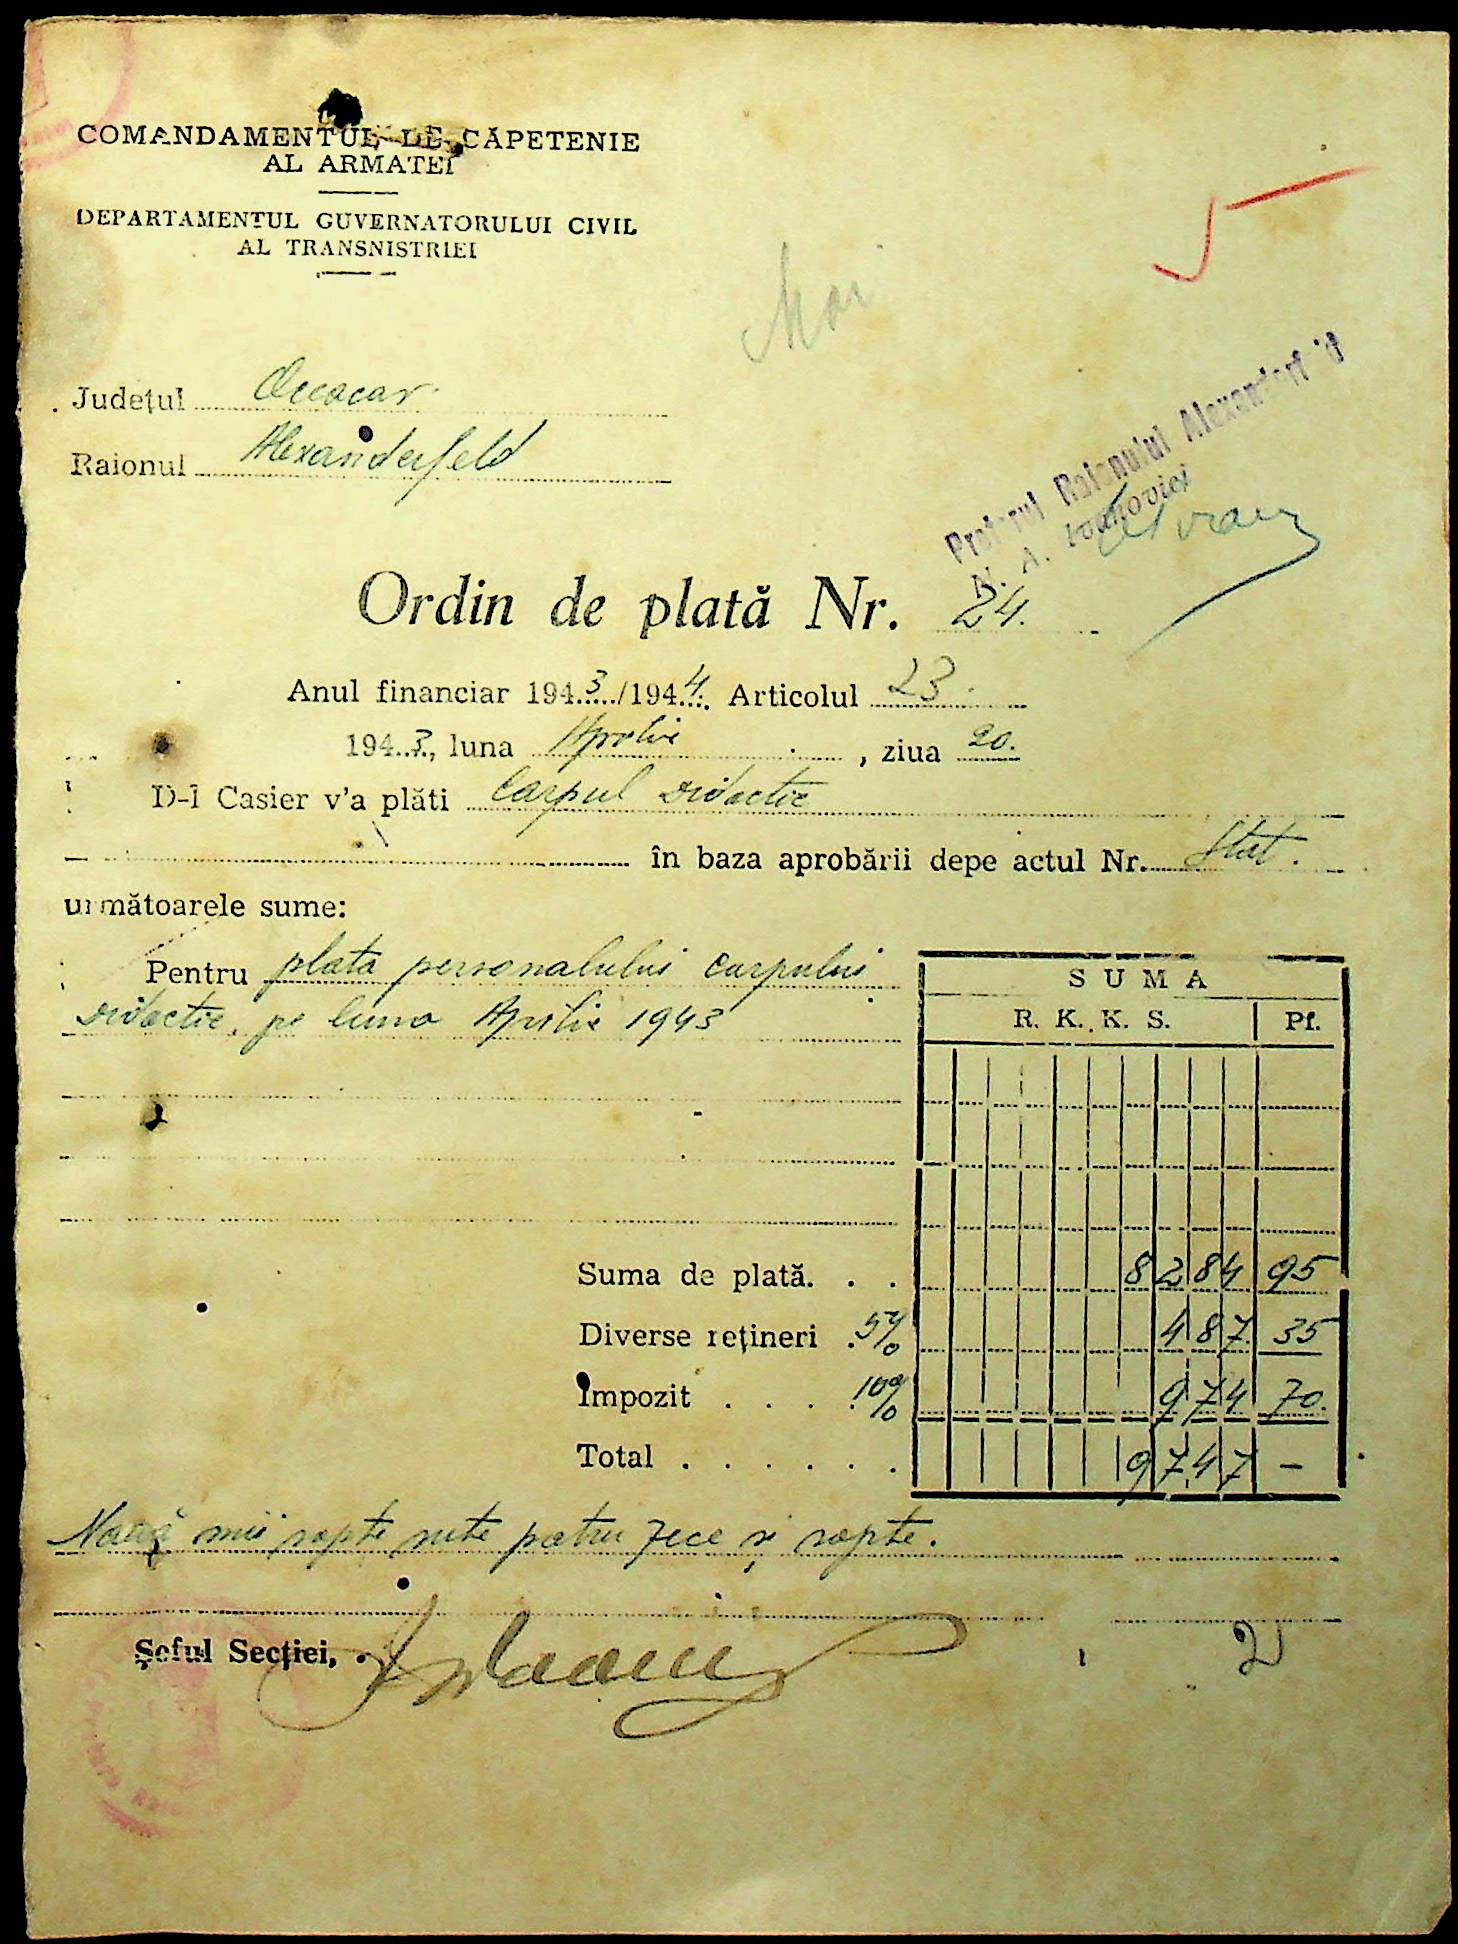 COMANDAMENTUL DE CĂPETENIE
AL ARMATEI
DEPARTAMENTUL GUVERNATORULUI CIVIL
AL TRANSNISTRIEI
Mai
Județul Oceacov
Raionul Alexanderfeld
Pretorul Raionului Alexanderfeld
N. A. Ivanovici
Ordin de plată Nr. 24.
Anul financiar 1943/1944. Articolul 23.
1943, luna Aprilie, ziua 20.
D-l Casier v'a plăti Corpul Didactic
în baza aprobării depe actul Nr. Stat.
următoarele sume:
Pentru plata personalului corpului
Didactic, pe luna Aprilie 1943
SUMA
R. K. K. S. Pf.
Suma de plată. . . 8284 95
Diverse rețineri . 5% 487. 35
Impozit . . . . 10% 974 70.
Total . . . . . . . 9747 –
Nouă mii șapte sute patru zece și șapte.
Șeful Secției,
2